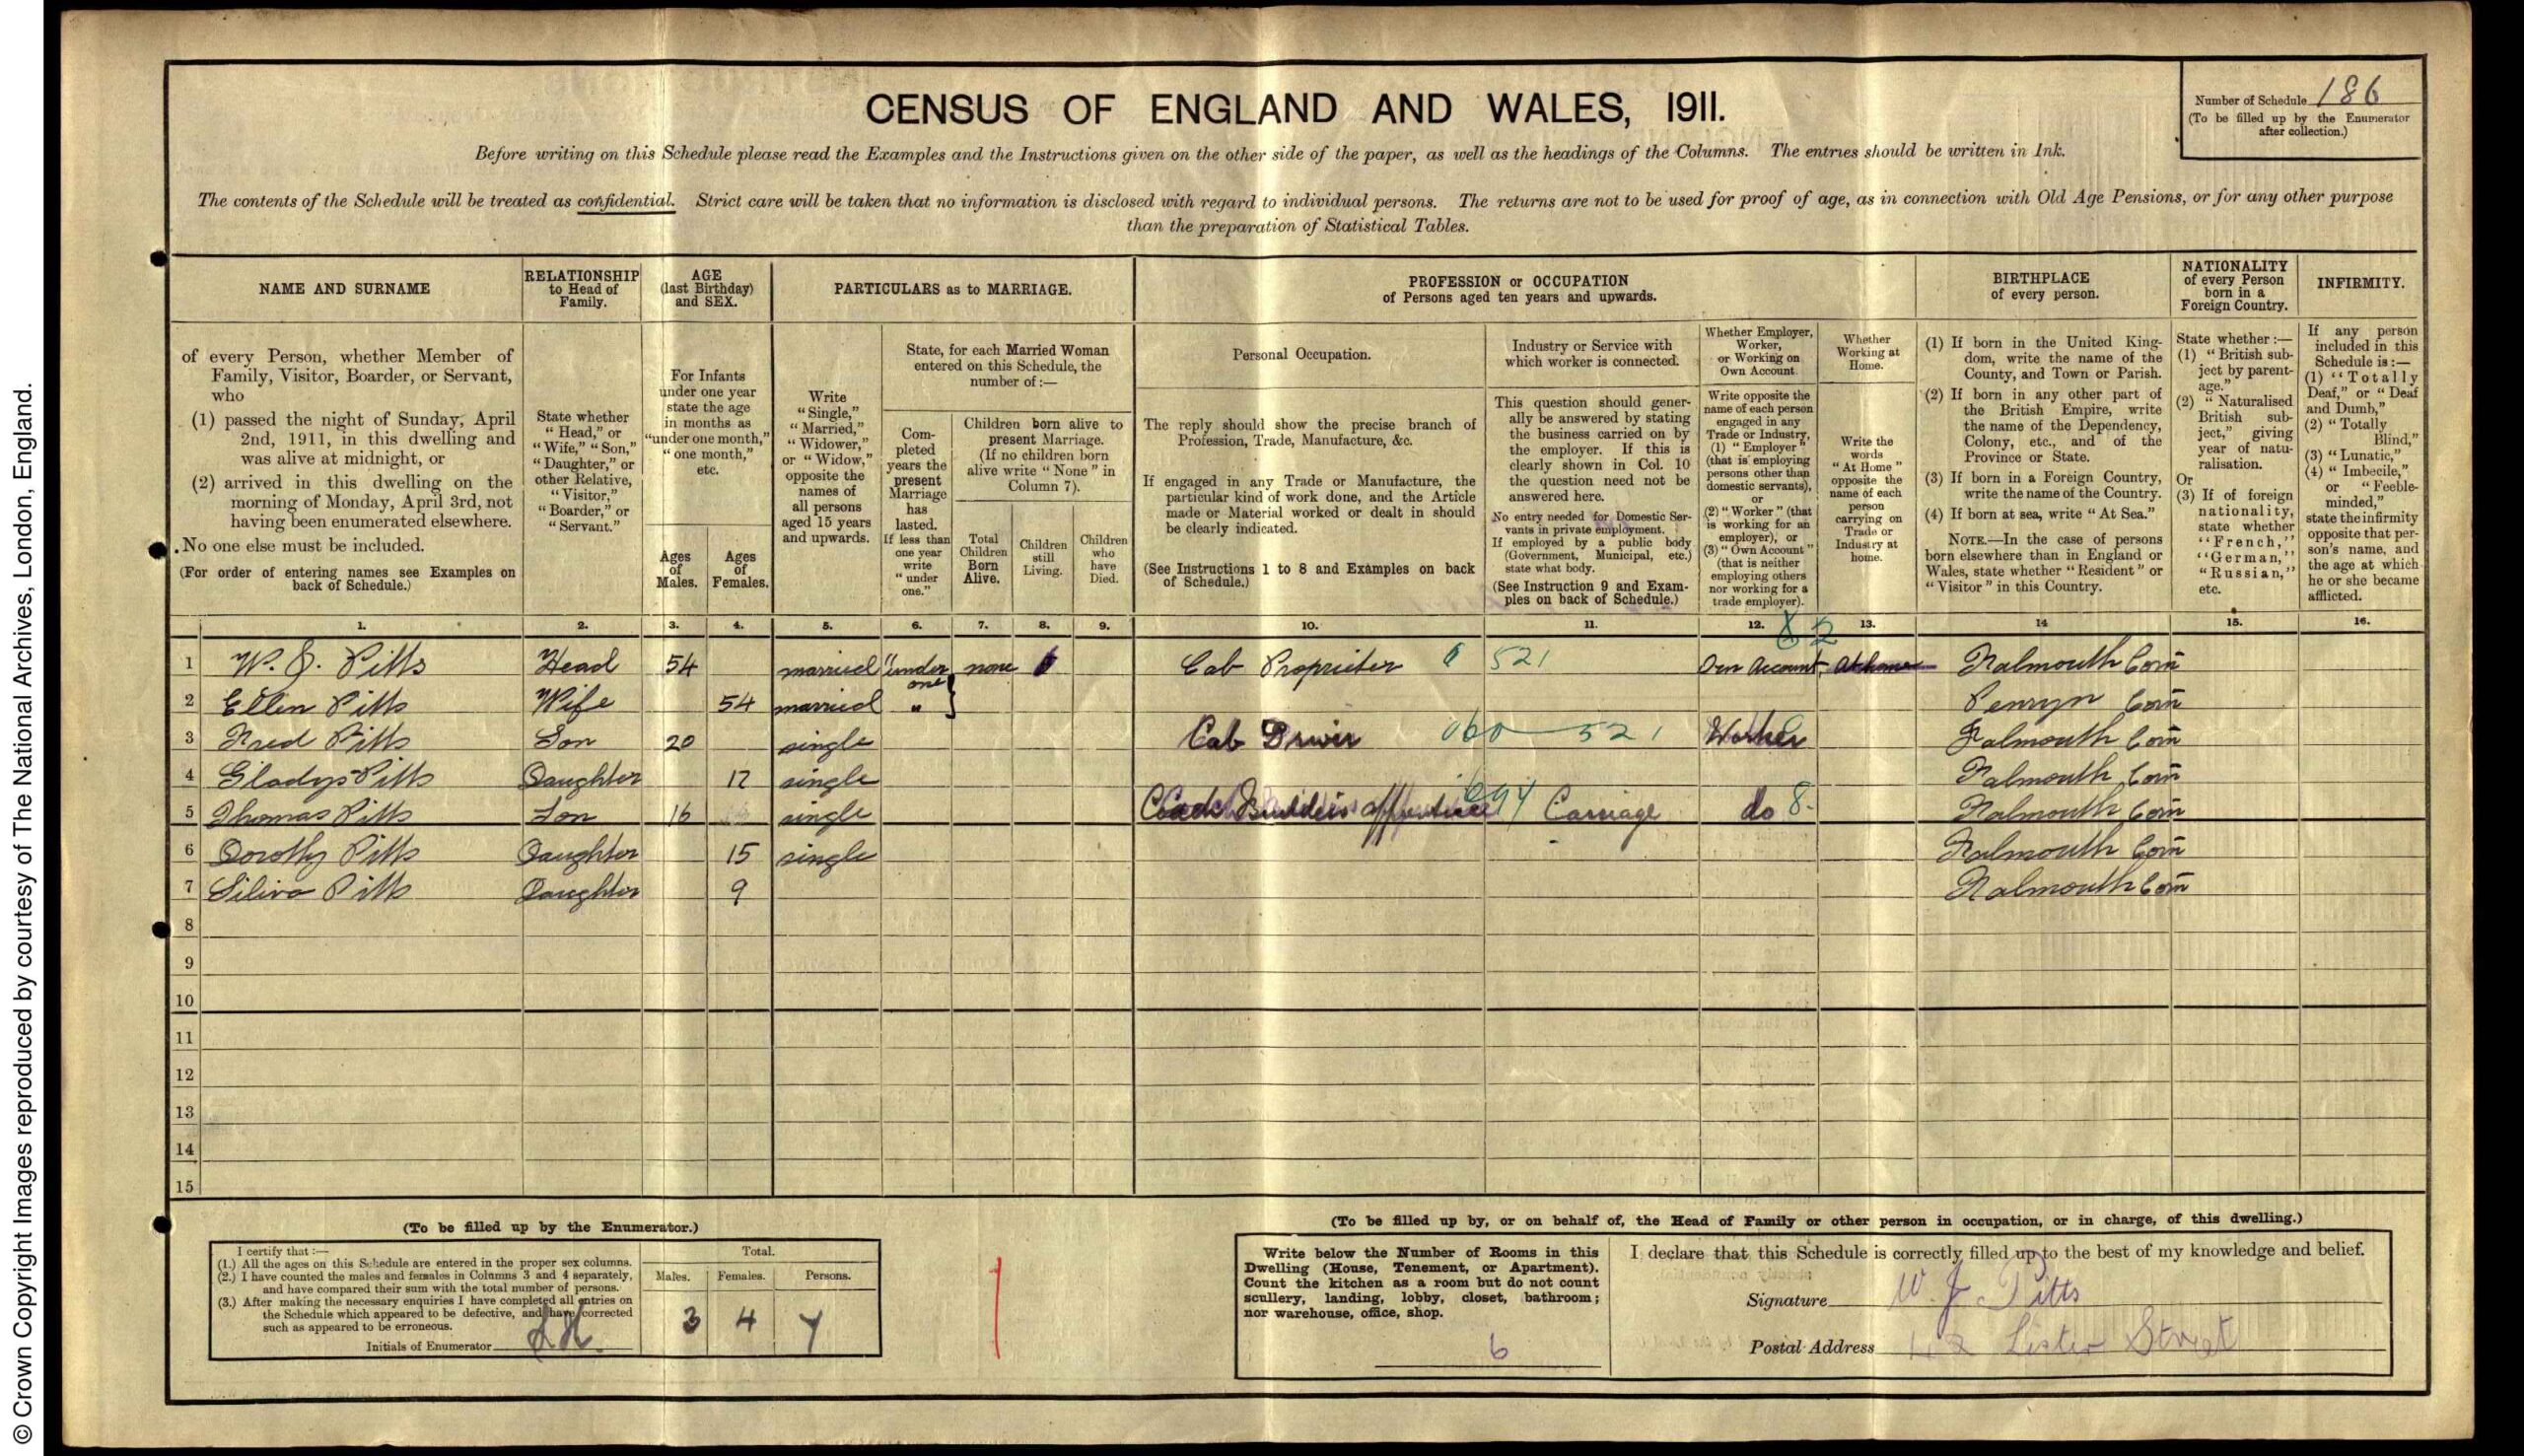 © Crown Copyright Images reproduced by courtesy of The National Archives, London, England.
CENSUS OF ENGLAND AND WALES, 1911.
Number of Schedule 186
(To be filled up by the Enumerator
after collection.)
Before writing on this Schedule please read the Examples and the Instructions given on the other side of the paper, as well as the headings of the Columns. The entries should be written in Ink.
The contents of the Schedule will be treated as confidential. Strict care will be taken that no information is disclosed with regard to individual persons. The returns are not to be used for proof of age, as in connection with Old Age Pensions, or for any other purpose
than the preparation of Statistical Tables.
NAME AND SURNAME
of every Person, whether Member of
Family, Visitor, Boarder, or Servant,
who
(1) passed the night of Sunday, April
2nd, 1911, in this dwelling and
was alive at midnight, or
(2) arrived in this dwelling on the
morning of Monday, April 3rd, not
having been enumerated elsewhere.
No one else must be included.
(For order of entering names see Examples on
back of Schedule.)
RELATIONSHIP
to Head of
Family.
State whether
"Head," or
"Wife," "Son,"
"Daughter," or
other Relative,
"Visitor,"
"Boarder," or
"Servant."
AGE
(last Birthday)
and SEX.
For Infants
under one year
state the age
in months as
"under one month,"
"one month,"
etc.
Ages
of
Males.
Ages
of
Females.
PARTICULARS as to MARRIAGE.
Write
"Single,"
"Married,"
"Widower,"
or "Widow,"
opposite the
names of
all persons
aged 15 years
and upwards.
State, for each Married Woman
entered on this Schedule, the
number of:—
Com-
pleted
years the
present
Marriage
has
lasted.
If less than
one year
write
"under
one."
Children born alive to
present Marriage.
(If no children born
alive write "None" in
Column 7).
Total
Children
Born
Alive.
Children
still
Living.
Children
who
have
Died.
PROFESSION or OCCUPATION
of Persons aged ten years and upwards.
Personal Occupation.
The reply should show the precise branch of
Profession, Trade, Manufacture, &c.
If engaged in any Trade or Manufacture, the
particular kind of work done, and the Article
made or Material worked or dealt in should
be clearly indicated.
(See Instructions 1 to 8 and Examples on back
of Schedule.)
Industry or Service with
which worker is connected.
This question should gener-
ally be answered by stating
the business carried on by
the employer. If this is
clearly shown in Col. 10
the question need not be
answered here.
No entry needed for Domestic Ser-
vants in private employment.
If employed by a public body
(Government, Municipal, etc.)
state what body.
(See Instruction 9 and Exam-
ples on back of Schedule.)
Whether Employer,
Worker,
or Working on
Own Account.
Write opposite the
name of each person
engaged in any
Trade or Industry,
(1) "Employer"
(that is employing
persons other than
domestic servants),
or
(2) "Worker" (that
is working for an
employer), or
(3) "Own Account"
(that is neither
employing others
nor working for a
trade employer).
Whether
Working at
Home.
Write the
words
"At Home"
opposite the
name of each
person
carrying on
Trade or
Industry at
home.
BIRTHPLACE
of every person.
(1) If born in the United King-
dom, write the name of the
County, and Town or Parish.
(2) If born in any other part of
the British Empire, write
the name of the Dependency,
Colony, etc., and of the
Province or State.
(3) If born in a Foreign Country,
write the name of the Country.
(4) If born at sea, write "At Sea."
NOTE.—In the case of persons
born elsewhere than in England or
Wales, state whether "Resident" or
"Visitor" in this Country.
NATIONALITY
of every Person
born in a
Foreign Country.
State whether:—
(1) "British sub-
ject by parent-
age."
(2) "Naturalised
British sub-
ject," giving
year of natu-
ralisation.
Or
(3) If of foreign
nationality,
state whether
"French,"
"German,"
"Russian,"
etc.
INFIRMITY.
If any person
included in this
Schedule is:—
(1) "Totally
Deaf," or "Deaf
and Dumb,"
(2) "Totally
Blind,"
(3) "Lunatic,"
(4) "Imbecile,"
or "Feeble-
minded,"
state the infirmity
opposite that per-
son's name, and
the age at which
he or she became
afflicted.
1. 2. 3. 4. 5. 6. 7. 8. 9. 10. 11. 12. 13. 14 15. 16.
1 W. J. Pitts Head 54 married "under one none Cab Proprietor 521 Own Account At home Falmouth Corn
2 Ellen Pitts Wife 54 married " Penryn Corn
3 Fred Pitts Son 20 single Cab Driver 060 521 Worker Falmouth Corn
4 Gladys Pitts Daughter 17 single Falmouth Corn
5 Thomas Pitts Son 16 single Coach Builders apprentice Carriage do 8 Falmouth Corn
6 Dorothy Pitts Daughter 15 single Falmouth Corn
7 Siliva Pitts Daughter 9 Falmouth Corn
8
9
10
11
12
13
14
15
(To be filled up by the Enumerator.)
I certify that:—
(1.) All the ages on this Schedule are entered in the proper sex columns.
(2.) I have counted the males and females in Columns 3 and 4 separately,
and have compared their sum with the total number of persons.
(3.) After making the necessary enquiries I have completed all entries on
the Schedule which appeared to be defective, and have corrected
such as appeared to be erroneous.
Initials of Enumerator
Total.
Males. Females. Persons.
3 4 7
(To be filled up by, or on behalf of, the Head of Family or other person in occupation, or in charge, of this dwelling.)
Write below the Number of Rooms in this
Dwelling (House, Tenement, or Apartment).
Count the kitchen as a room but do not count
scullery, landing, lobby, closet, bathroom;
nor warehouse, office, shop.
6
I declare that this Schedule is correctly filled up to the best of my knowledge and belief.
Signature W. J. Pitts
Postal Address 42 Lister Street